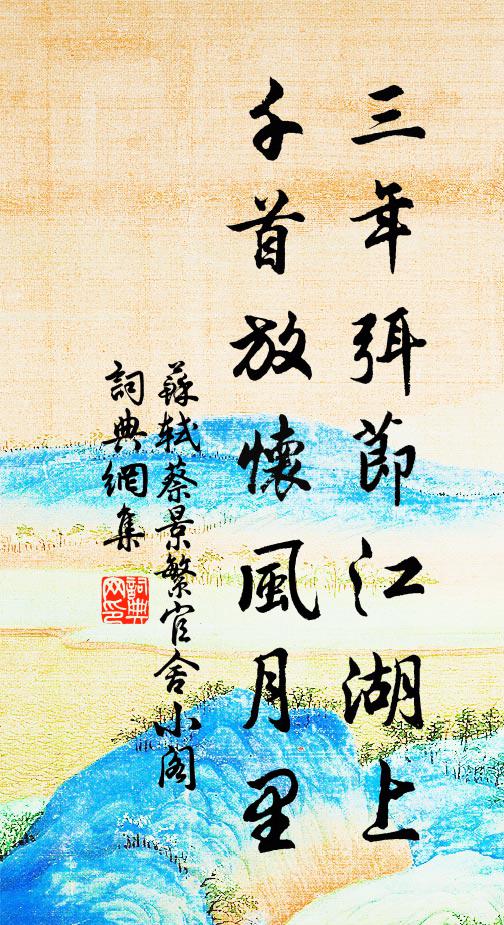 三年弭節江湖上
千首放懷風月里
蘇軾蔡景繁官舍小閣
詞典網集
詞典